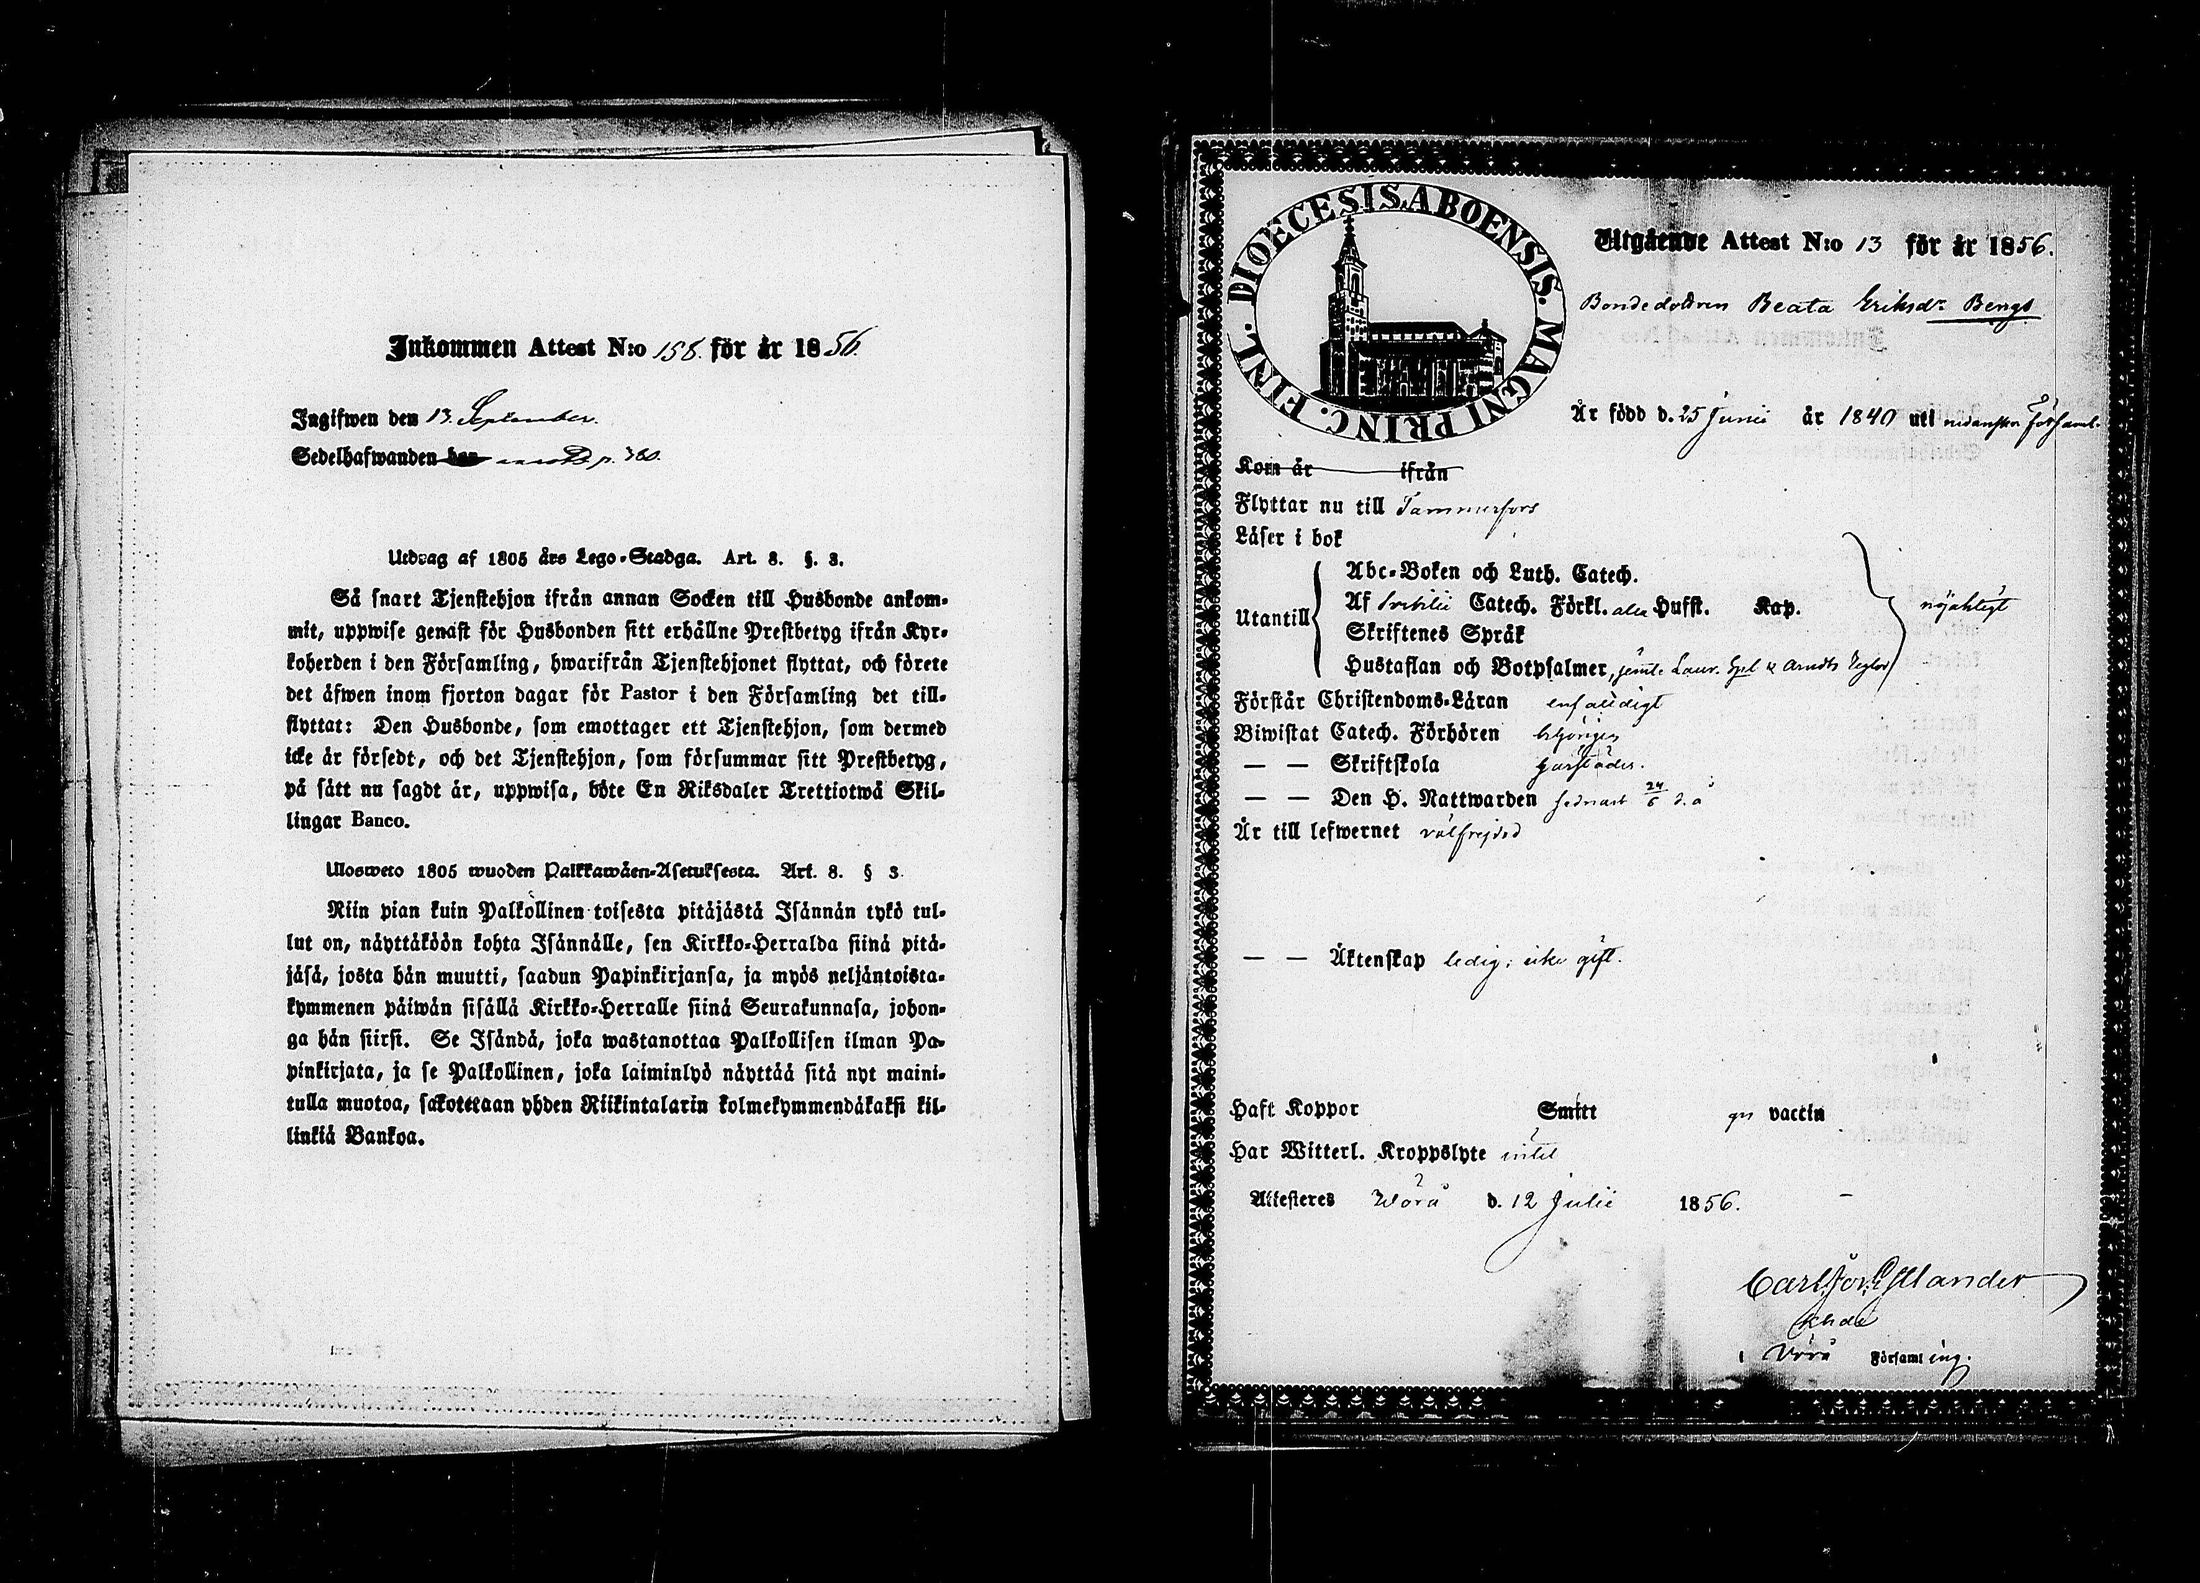 Inkommen Attest N:o 158. för år 1856.
Ingifwen den 13. September.
Sedelhafwanden den p. 360.
Utdrag af 1805 års Lego-Stadga. Art. 8. §. 3.
Så snart Tjenstehjon ifrån annan Socken till Husbonde ankom-
mit, uppwise genast för Husbonden sitt erhållne Prestbetyg ifrån Kyr-
koherden i den Församling, hwarifrån Tjenstehjonet flyttat, och förete
det äfwen inom fjorton dagar för Pastor i den Församling det till-
flyttat: Den Husbonde, som emottager ett Tjenstehjon, som dermed
icke är försedt, och det Tjenstehjon, som försummar sitt Prestbetyg,
på sätt nu sagdt är, uppwisa, böte En Riksdaler Trettiotwå Skil-
lingar Banco.
Ulosweto 1805 wuoden Palkkawäen-Asetuksesta. Art. 8. § 3.
Niin pian kuin Palkollinen toisesta pitäjästä Isännän tykö tul-
lut on, näyttäköön kohta Isännälle, sen Kirkko-Herralda siinä pitä-
jäsä, josta hän muutti, saadun Papinkirjansa, ja myös neljäntoista-
kymmenen päiwän sisällä Kirkko-Herralle siinä Seurakunnasa, johon-
ga hän siirsi. Se Isändä, joka wastanottaa Palkollisen ilman Pa-
pinkirjata, ja se Palkollinen, joka laiminlyö näyttää sitä nyt maini-
tulla muotoa, sakotetaan yhden Riikintalarin kolmekymmendäkaksi kil-
linkiä Bankoa.
DIOECESIS ABOENSIS. MAGNI PRINC. FINL.
Utgående Attest N:o 13 för år 1856.
Bondedottren Beata Eriksdr Bengs
Är född d. 25 Junii år 1840 uti nedanskr Församl.
Kom år ifrån
Flyttar nu till Tammerfors
Läser i bok
Abc-Boken och Luth. Catech.
Utantill Af Svebilii Catech. Förkl. alla Hufst. Kap. nöjaktigt
Skriftenes Språk
Hustaflan och Botpsalmer, jemte Laur. Spl & Arndts
Förstår Christendoms-Läran enfaldigt
Biwistat Catech. Förhören behörigen
— — Skriftskola
— — Den H. Nattwarden sednast 24/6 d. å
Är till lefwernet välfrejdad
— — Äktenskap ledig; icke gift.
Haft Koppor Smitt gn vaccin
Har Witterl. Kroppslyte intet
Attesteres Wörå d. 12 Julii 1856.
Carl Estlander
Khde
i Vörå Församling.